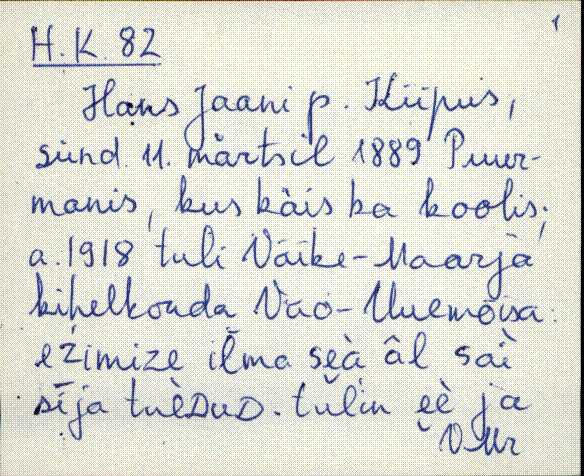 1
H. K. 82
Hans Jaani p. Kiipus,
sünd. 11. märtsil 1889 Puur-
manis, kus käis ka koolis;
a. 1918 tuli Väike-Maarja
kihelkonda Vao-Uuemõisa:
ežimize ilma seà âl saì
sīja tuèDuD. tulin èè ja